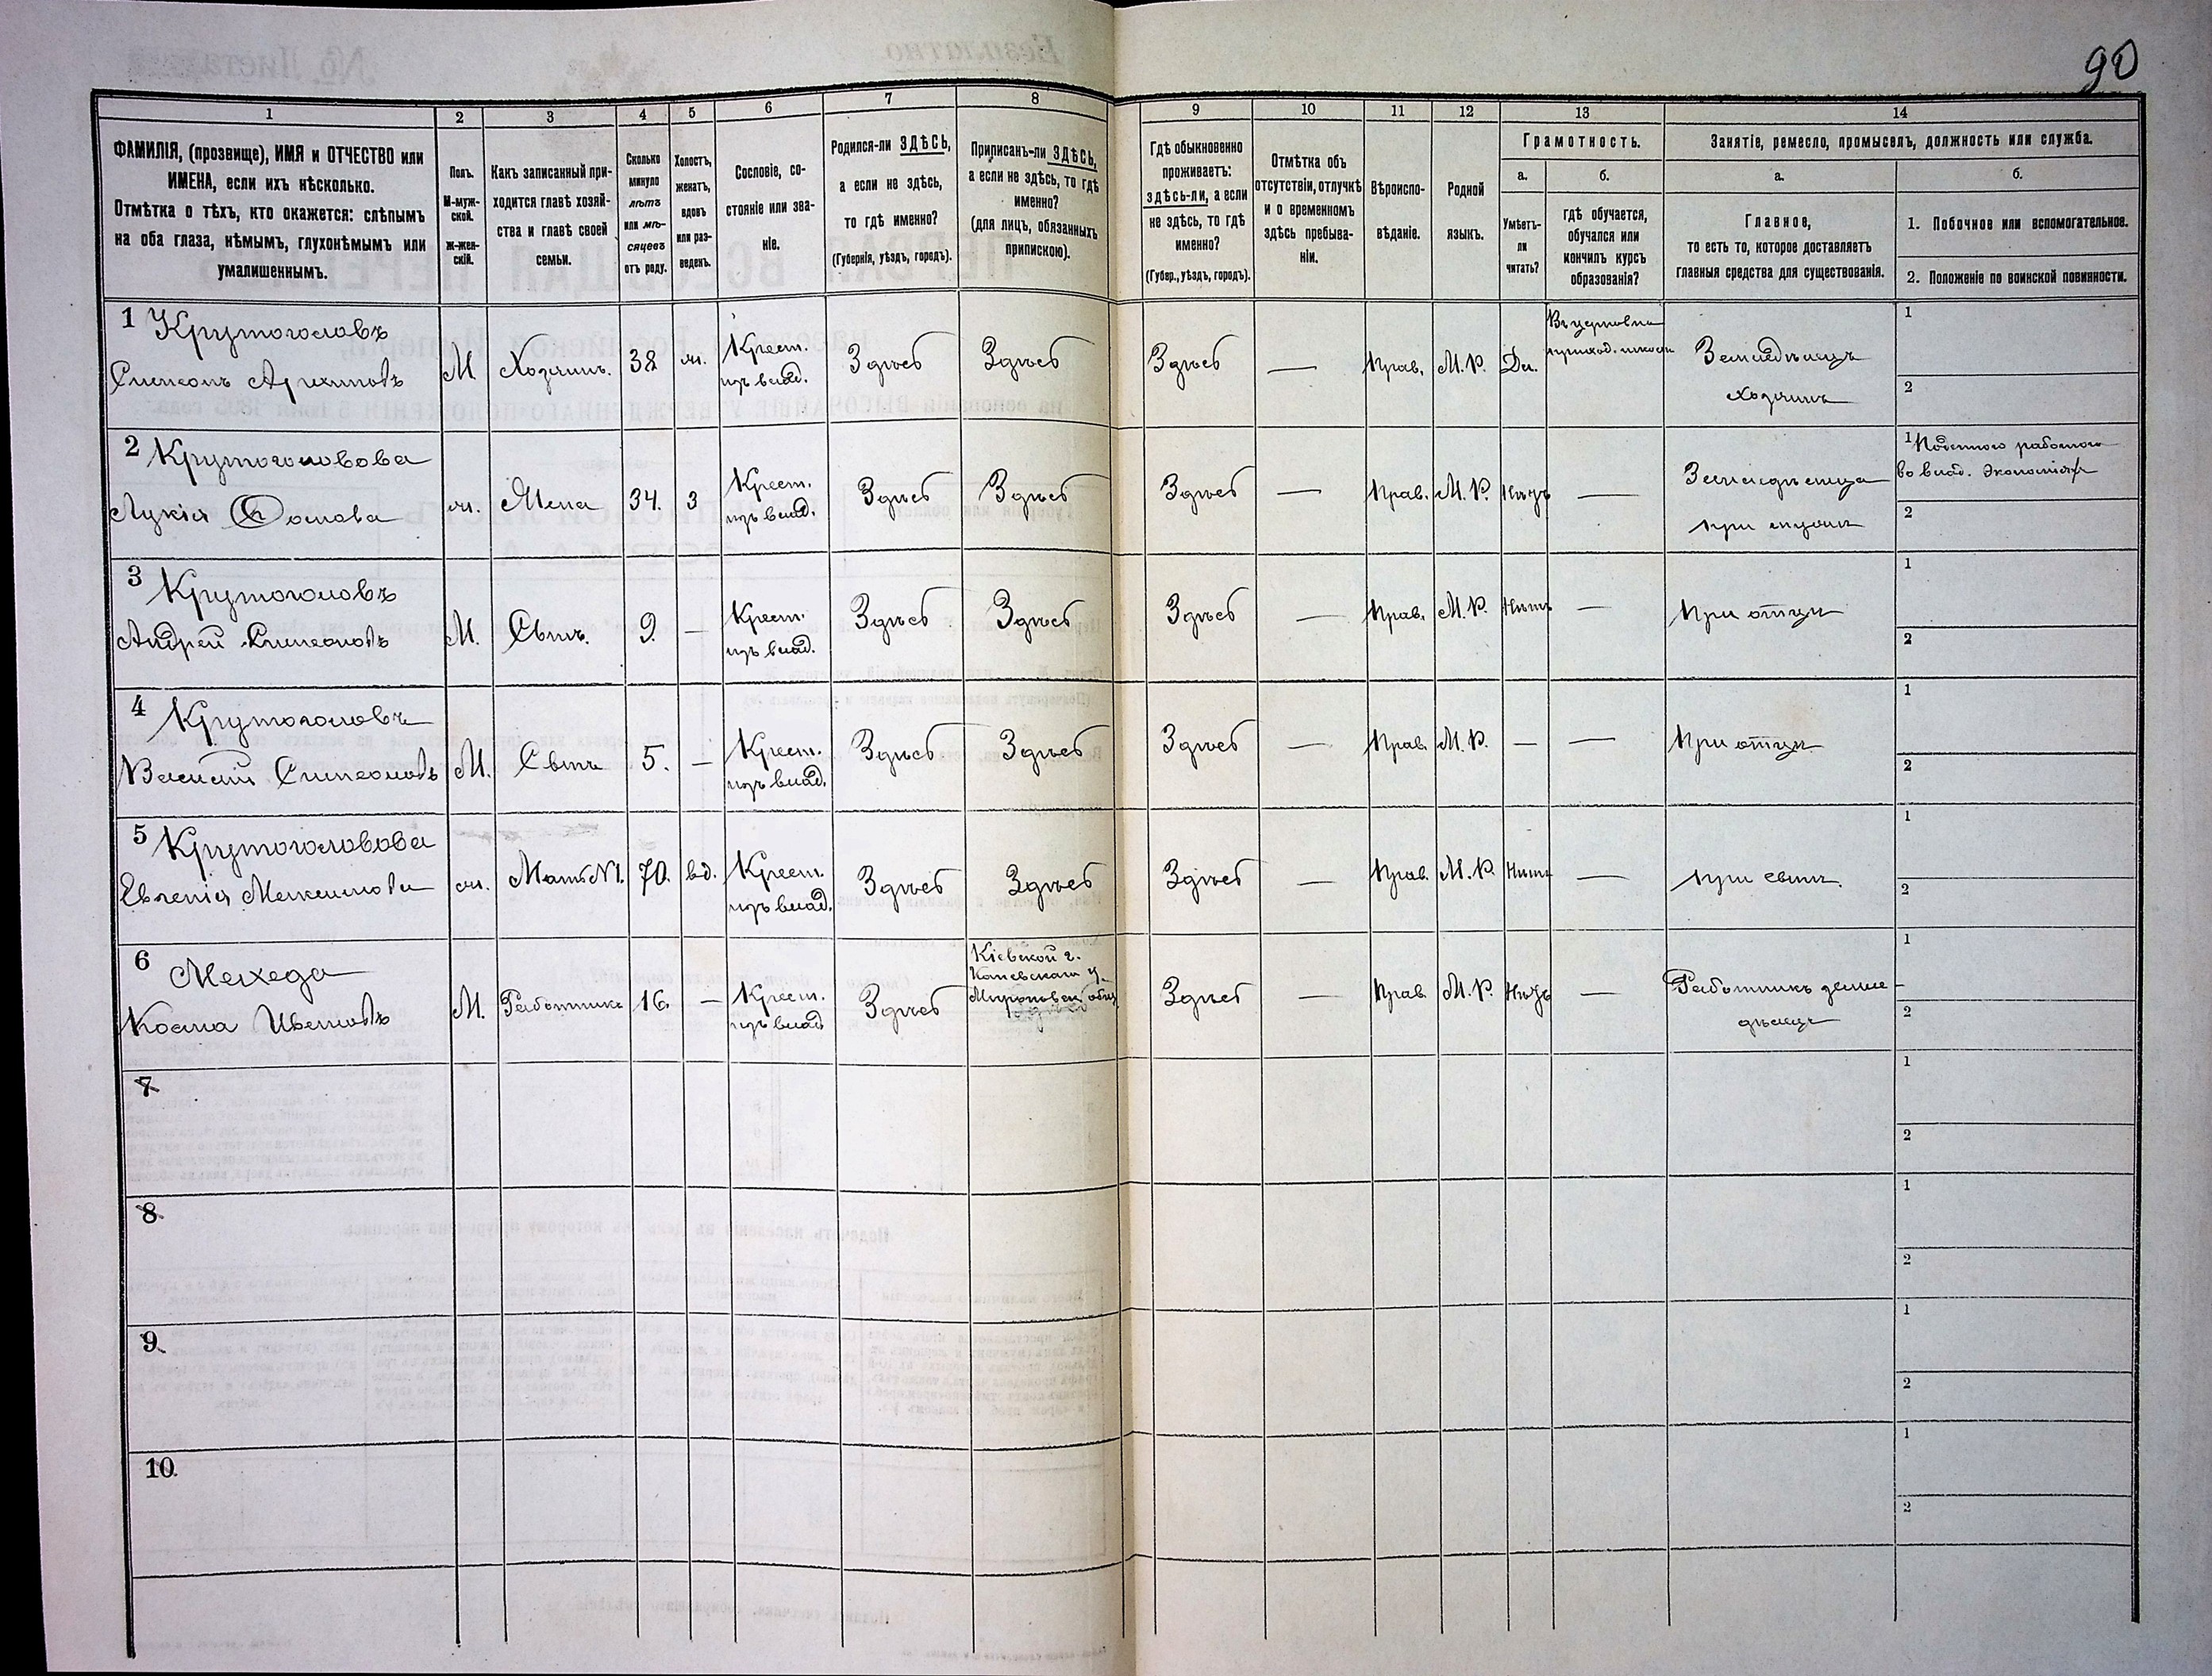 90
1
2
3
4
5
6
7
8
9
10
11
12
13
14
ФАМИЛІЯ, (прозвище), ИМЯ и ОТЧЕСТВО или
ИМЕНА, если ихъ нѣсколько.
Отмѣтка о тѣхъ, кто окажется: слѣпымъ
на оба глаза, нѣмымъ, глухонѣмымъ или
умалишеннымъ.
Полъ.
М-муж-
ской.
ж-жен-
скій.
Какъ записанный при-
ходится главѣ хозяй-
ства и главѣ своей
семьи.
Сколько
минуло
лѣтъ
или мѣ-
сяцевъ
отъ роду.
Холостъ,
женатъ,
вдовъ
или раз-
веденъ.
Сословіе, со-
стояніе или зва-
ніе.
Родился-ли ЗДѢСЬ,
а если не здѣсь,
то гдѣ именно?
(Губернія, уѣздъ, городъ).
Приписанъ-ли ЗДѢСЬ,
а если не здѣсь, то гдѣ
именно?
(для лицъ, обязанныхъ
припискою).
Гдѣ обыкновенно
проживаетъ:
здѣсь-ли, а если
не здѣсь, то гдѣ
именно?
(Губер., уѣздъ, городъ).
Отмѣтка объ
отсутствіи, отлучкѣ
и о временномъ
здѣсь пребыва-
ніи.
Вѣроиспо-
вѣданіе.
Родной
языкъ.
Грамотность.
а.
Умѣетъ-
ли
читать?
б.
гдѣ обучается,
обучался или
кончилъ курсъ
образованія?
Занятіе, ремесло, промыселъ, должность или служба.
а.
Главное,
то есть то, которое доставляетъ
главныя средства для существованія.
б.
1. Побочное или вспомогательное.
2. Положеніе по воинской повинности.
1 Крутоголовъ
Симеонъ Архиповъ
М
Хозяинъ.
38
ж.
Крест.
изъ влад.
Здѣсь
Здѣсь
Здѣсь
—
Прав.
М. Р.
Да.
Въ церковно
приход. школѣ
Земледѣлецъ
хозяинъ
1
2
2 Крутоголовова
Лукія Фомова
ж.
Жена
34.
з
Крест.
изъ влад.
Здѣсь
Здѣсь
Здѣсь
—
Прав.
М. Р.
Нѣтъ
—
Земледѣлица
при мужѣ
1 Поденная работа
во влад. экономіях
2
3 Крутоголовъ
Андрей Симеоновъ
М.
Сынъ.
9.
—
Крест.
изъ влад.
Здѣсь
Здѣсь
Здѣсь
—
Прав.
М. Р.
Нѣтъ
—
При отцѣ
1
2
4 Крутоголовъ
Василій Симеоновъ
М.
Сынъ
5.
—
Крест.
изъ влад.
Здѣсь
Здѣсь
Здѣсь
—
Прав.
М. Р.
—
—
При отцѣ
1
2
5 Крутоголовова
Евгенія Максимова
ж.
Мать №1.
70.
вд.
Крест.
изъ влад.
Здѣсь
Здѣсь
Здѣсь
—
Прав.
М. Р.
Нѣтъ
—
при сынѣ.
1
2
6 Мехеда
Косма Ивановъ
М.
Работникъ
16.
—
Крест.
изъ влад
Здѣсь
Кіевской г.
Каневскаго у.
Мироновск. общ.
Здѣсь
—
Прав.
М. Р.
Нѣтъ
—
Работникъ земле
дѣлецъ
2
7
1
2
8
1
2
9
1
2
10
1
2